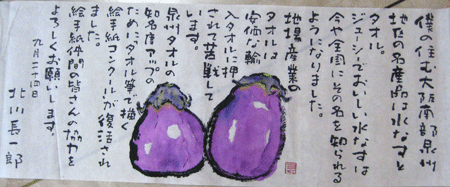 僕の住む大阪南部泉州
地方の名産品は水なすと
タオル。
ジューシーでおいしい水なすは
今や全国にその名を知られる
ようになりました。
地場産業の
タオルは
安価な輸
入タオルに押
されて苦戦して
います。
泉州タオルの
知名度アップの
ためにタオル筆で描く
絵手紙コンクールが復活され
ました。
絵手紙仲間の皆さんの協力を
よろしくお願いします。
九月二十四日
北川長一郎